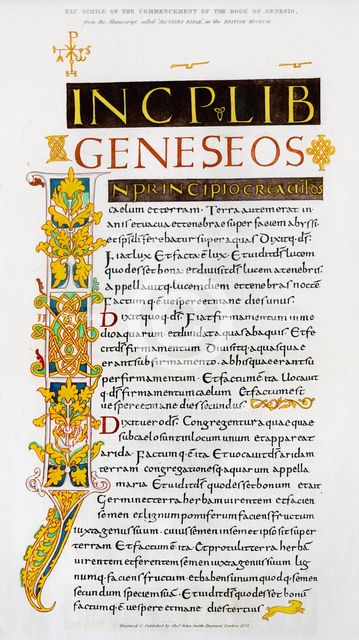 FAC SIMILE OF THE COMMENCEMENT OF THE BOOK OF GENESIS,
from the Manuscript called 'ALCUIN'S BIBLE,' in the BRITISH MUSEUM.
INCP LIB
GENESEOS
IN PRINCIPIO CREAVIT DS
caelum et terram · Terra autem erat in
anis et vacua et tenebrae super faciem abyssi
et sps di ferebatur super aquas Dixitq· ds·
Fiat lux · Et facta e lux · Et vidit ds lucem
quod esset bona et divisit ds lucem a tenebris·
appellavitq· lucem diem et tenebras nocte
Factumq· e vespere et mane dies unus·
Dixit quoq· ds Fiat firmamentum in me
dio aquarum · et dividat aquas ab aquis Et fe
cit ds firmamentum Divisitq· aquas quae
erant sub firmamento · ab his quae erant su
per firmamentum · Et factum e ita Vocavit
q· ds firmamentum caelum Et factum est
vespere et mane dies secundus·
Dixit vero ds· Congregentur aquae quae
sub caelo sunt in locum unum et appareat
arida · Factumq· e ita Et vocavit ds aridam
terram congregationesq· aquarum appella
maria Et vidit ds quod esset bonum et ait
Germinet terra herbam virentem et facien
semen et lignum pomiferum faciens fructum
iuxta genus suum · cuius semen in semet ipso sit super
terram Et factum e ita Et protulit terra herba
virentem et ferentem semen iuxta genus suum lig
numq· faciens fructum et habens unum quodq· semen
secundum speciem sua · Et vidit ds quod esset bonu
factumq· e vespere et mane dies tertius
Engraved & Published by Chas. John Smith, Engraver, London, 1836.